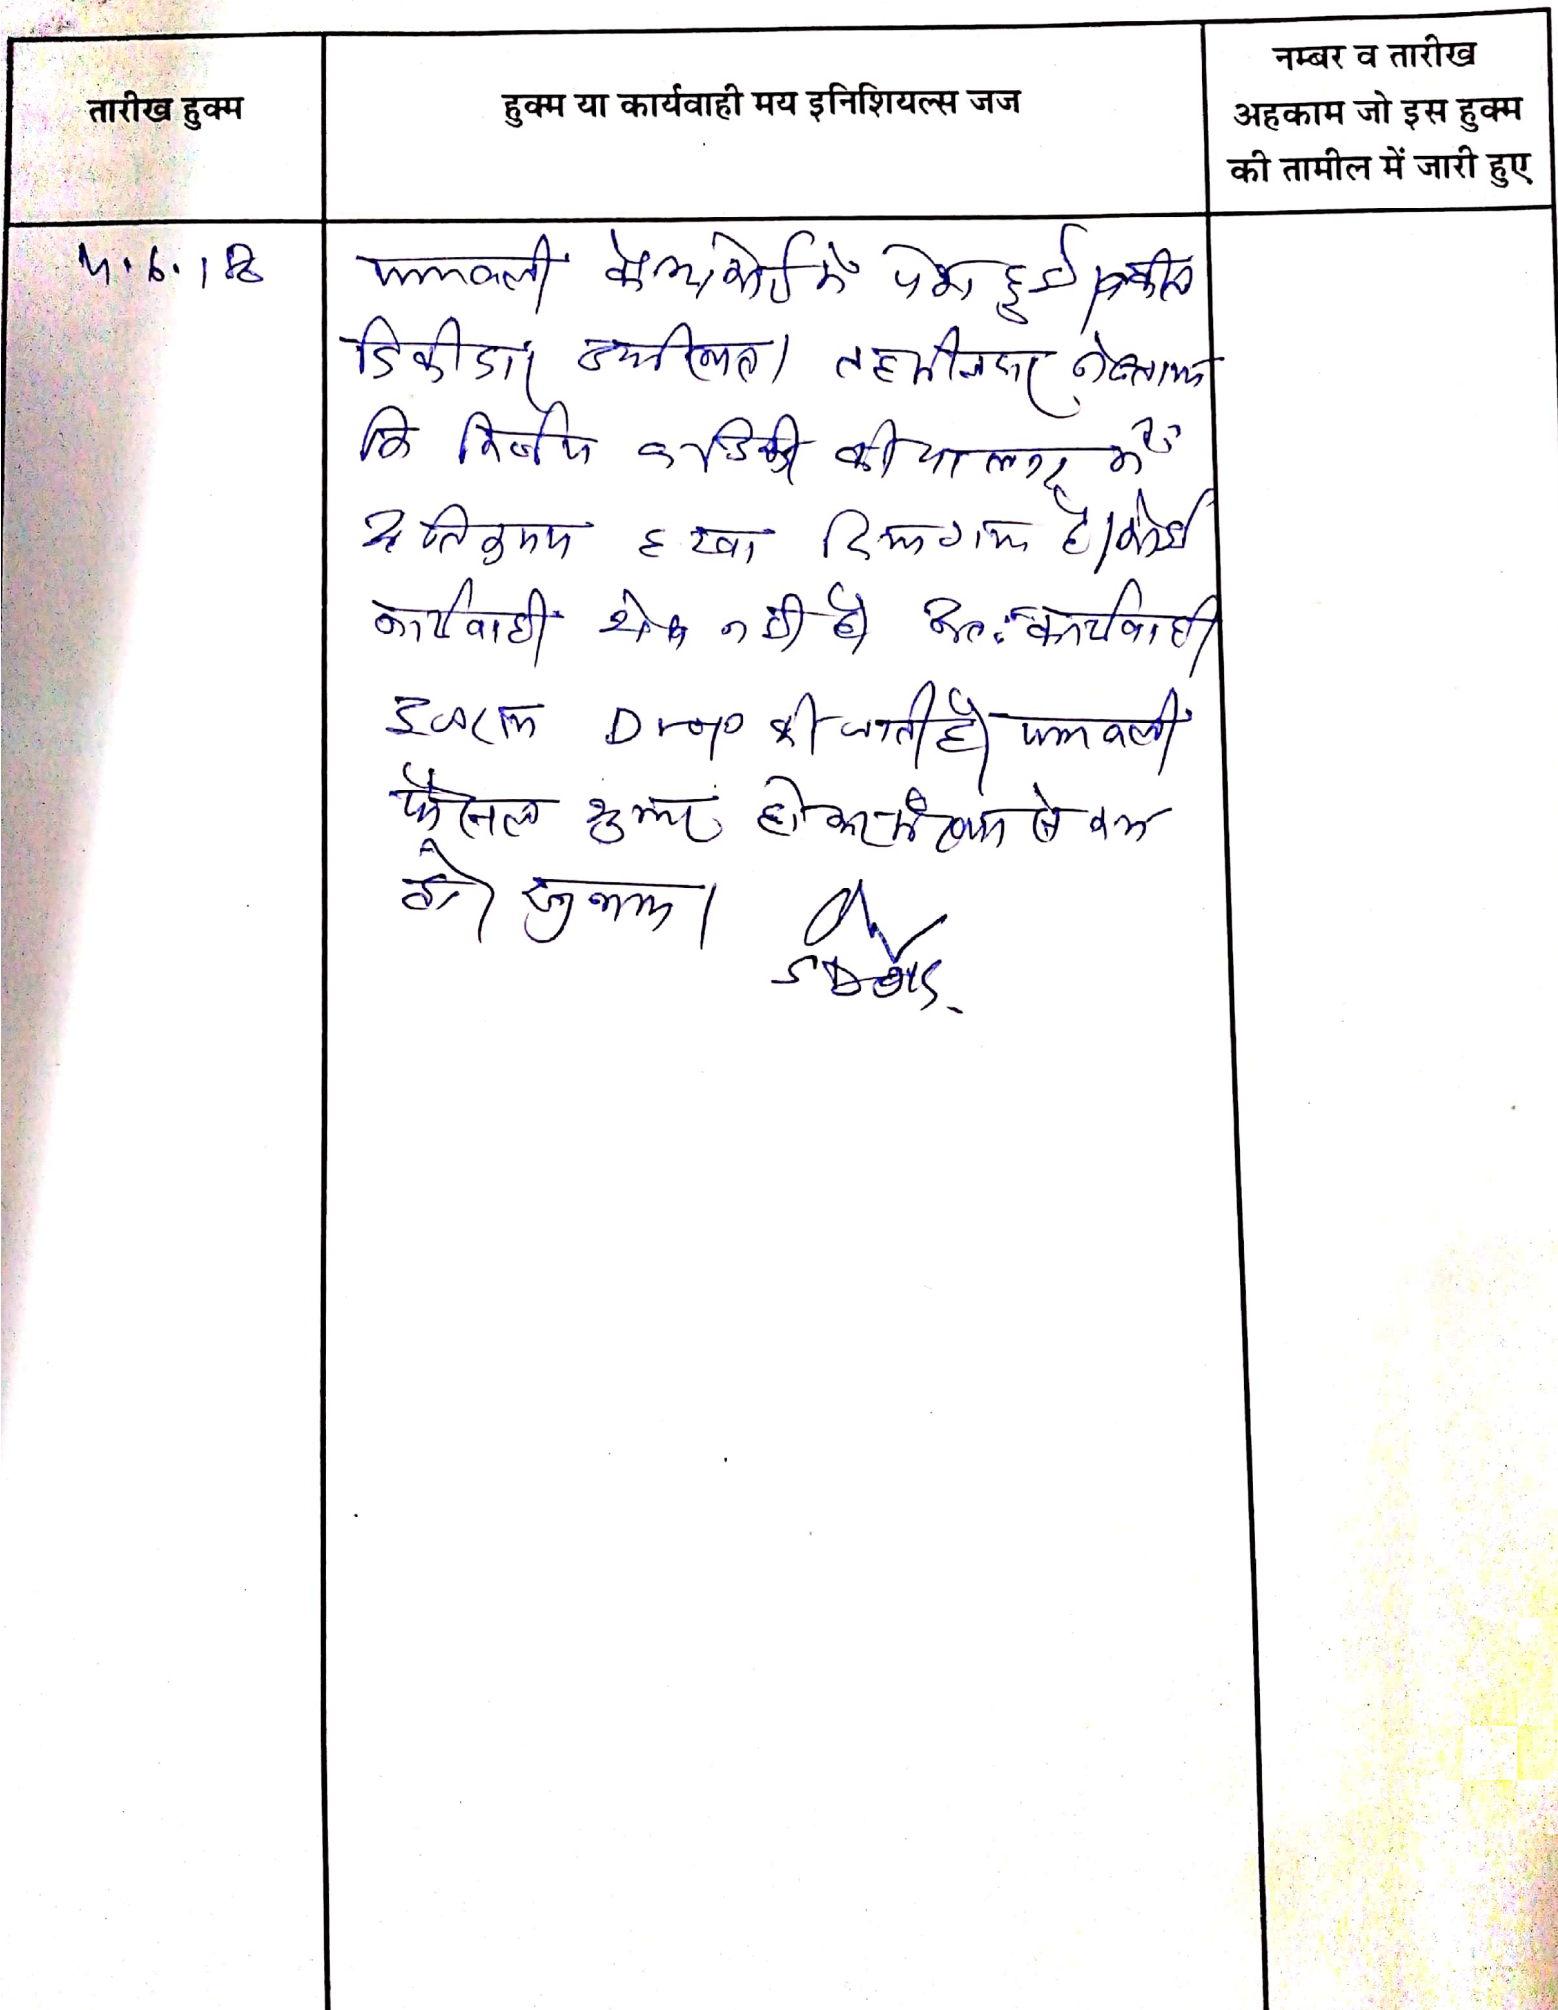 तारीख हुक्म
हुक्म या कार्यवाही मय इनिशियल्स जज
नम्बर व तारीख
अहकाम जो इस हुक्म
की तामील में जारी हुए
पत्रावली कैम्प कोर्ट में पेश हुई। वकील
डिक्रीदार उपस्थित। तहसीलदार ने बताया
कि निर्णय व डिक्री की पालना में
अतिक्रमण हटवा दिया गया है। कोई
कार्यवाही शेष नहीं है। अतः कार्यवाही
इजराय Drop की जाती है। पत्रावली
फैसल शुमार होकर संख्या से कम
हो। सुनाया।